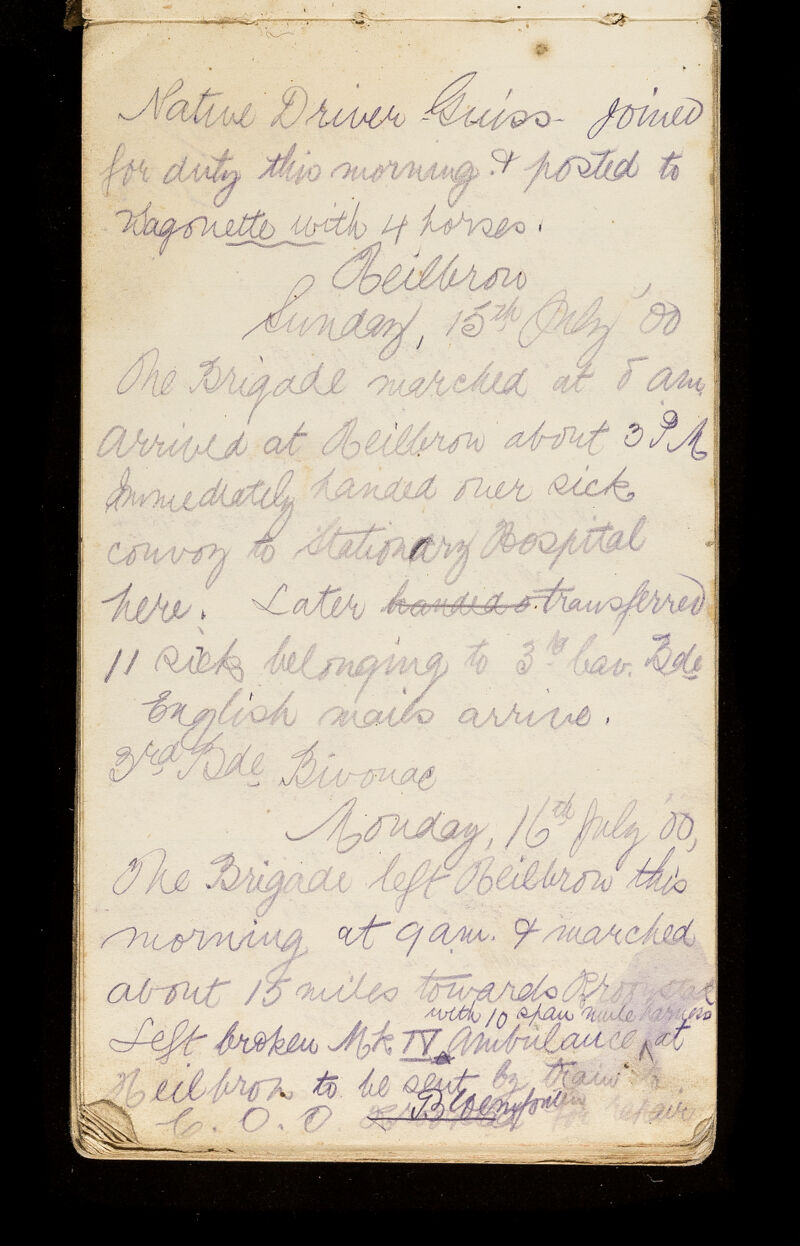 Native Driver Guiss joined
for duty this morning. & posted to
Wagonette with 4 horses.
Heilbron
Sunday, 15th July '00
The Brigade marched at 5 am
arrived at Heilbron about 3 PM
Immediately handed over sick
convoy to Stationary Hospital
here. Later handed o transferred
11 sick belonging to 3rd Cav. Bde
English mails arrive.
3rd Bde Bivouac
Monday, 16th July '00,
The Brigade left Heilbron this
morning at 9 am. & marched
about 15 miles towards
with 10 span mule harness
Left broken Mk IV ambulance at
Heilbron to be sent by train to
Bloemfontein
C. O. O. for repair